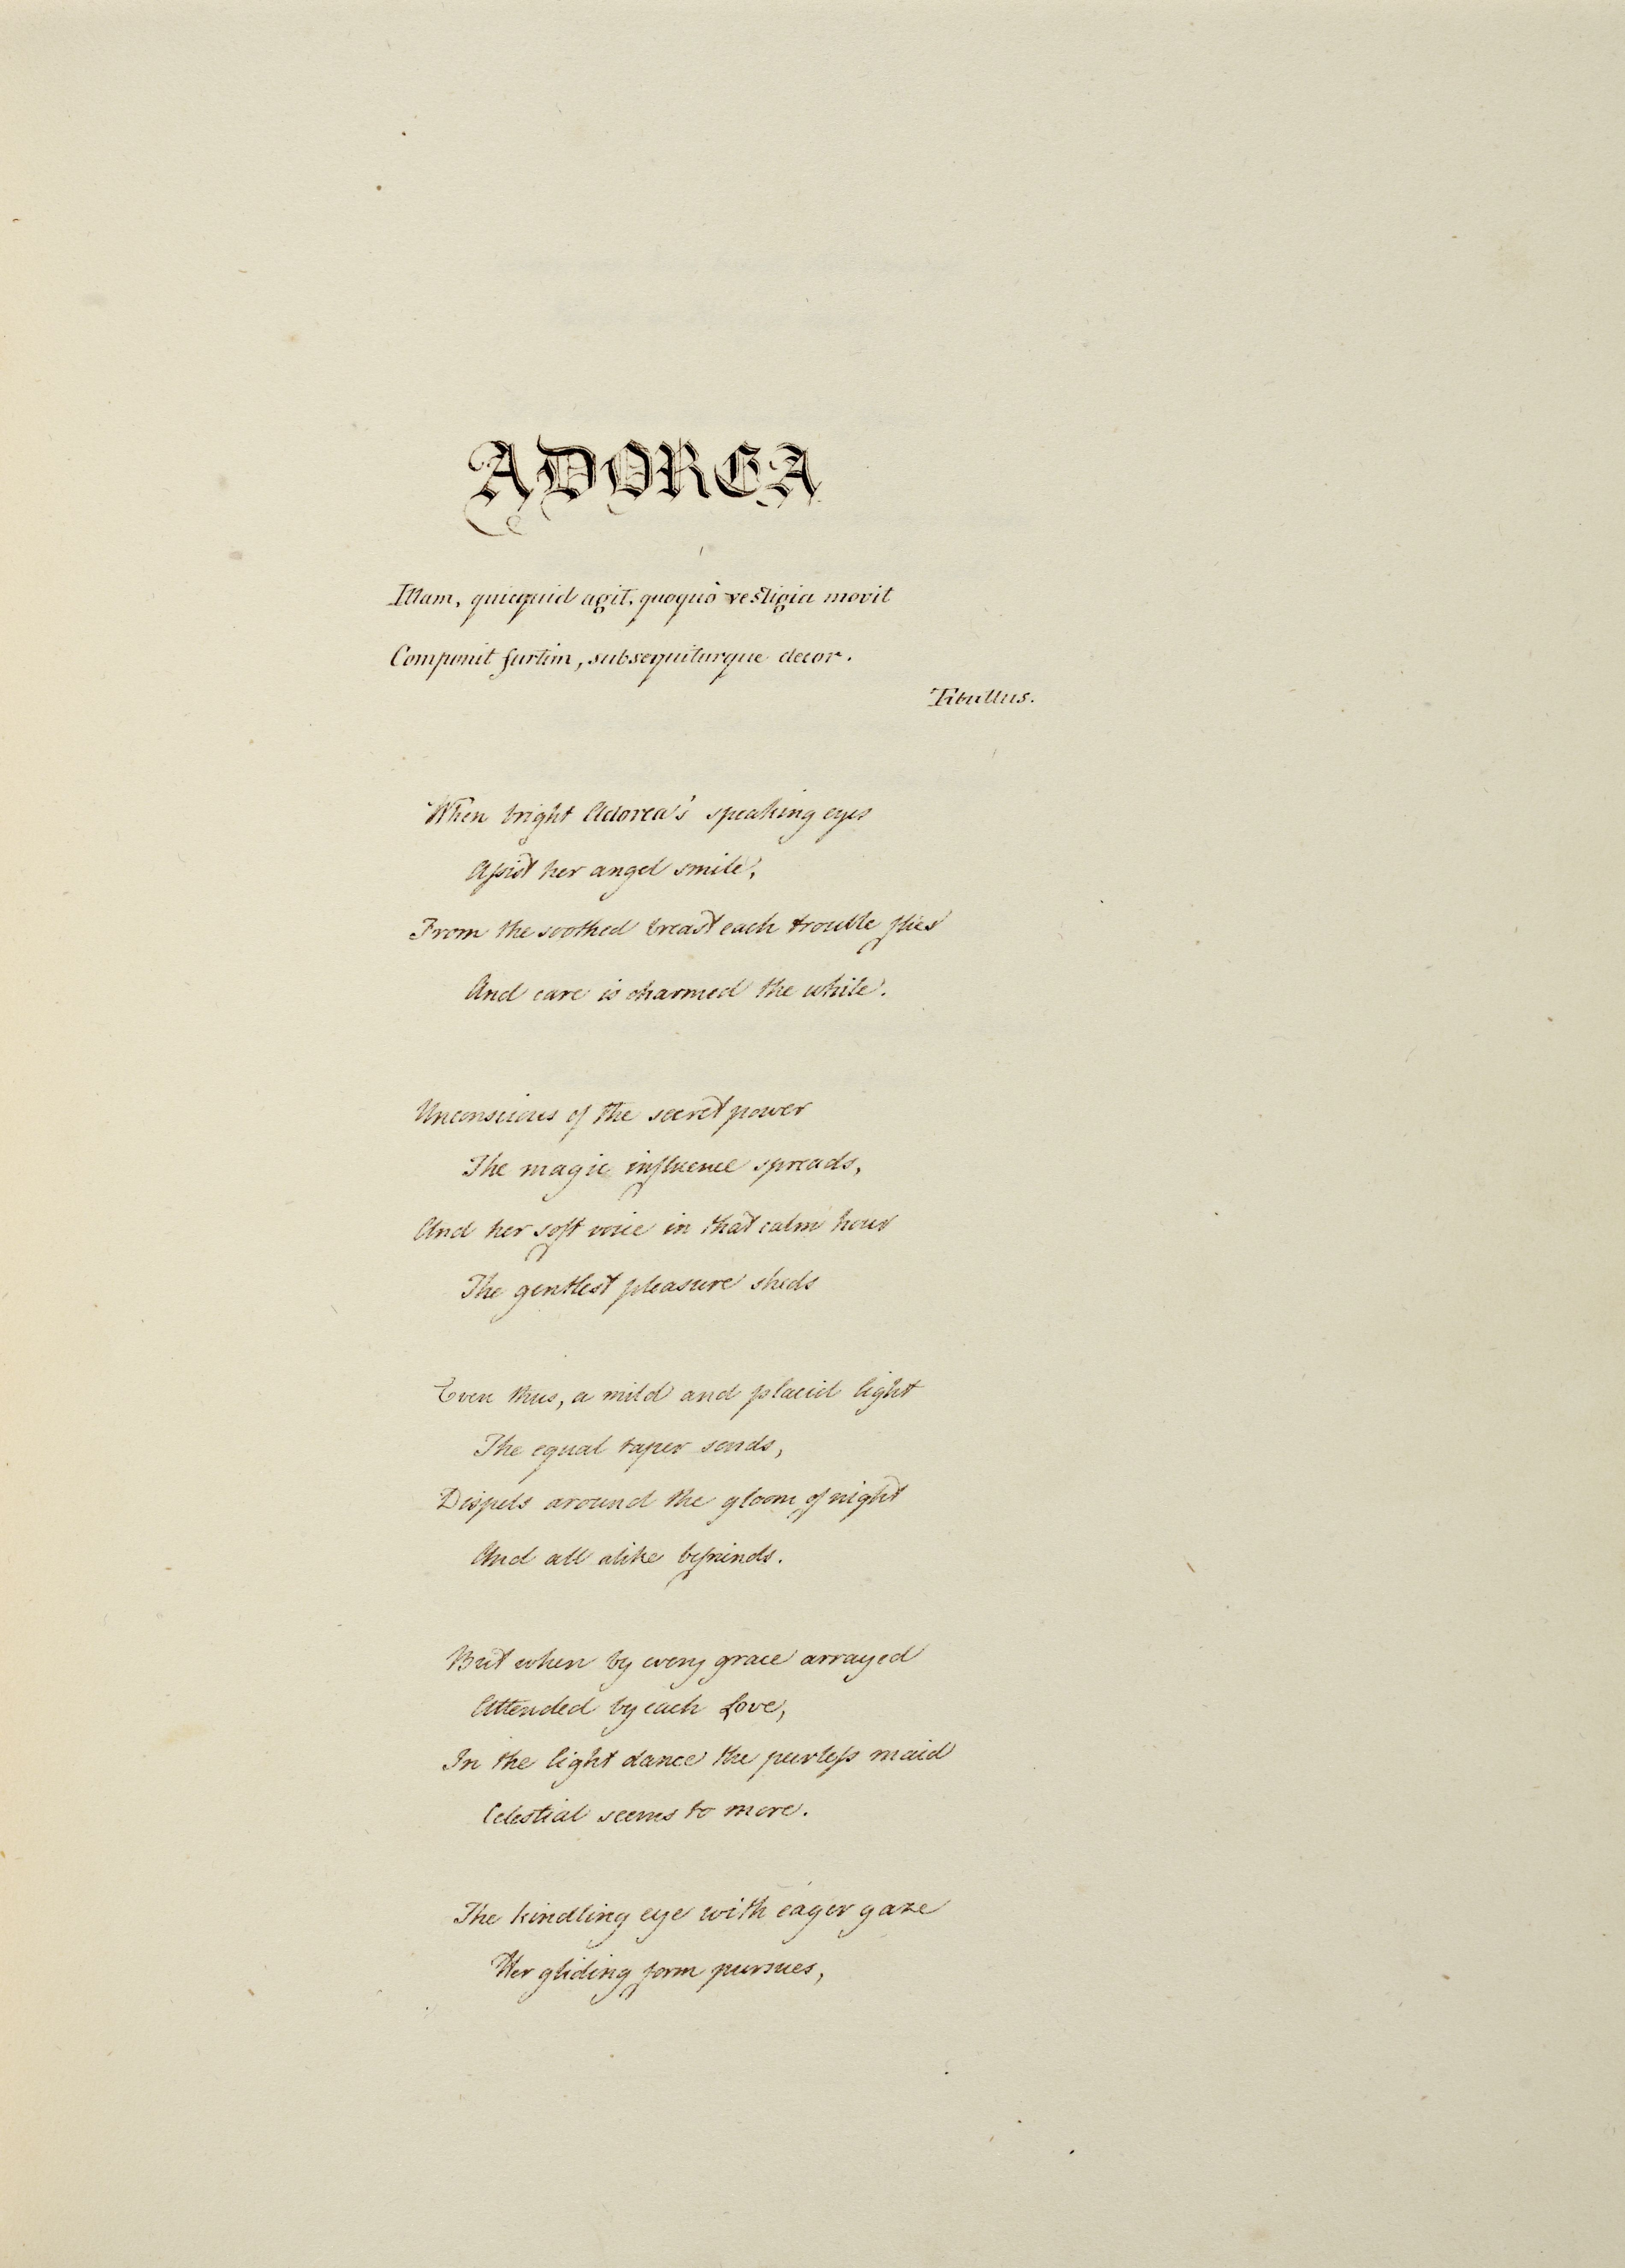 ADOREA
Illam, quicquid agit, quoquò vestigia movit
Componit furtim, subsequiturque decor.
Tibullus.
When bright Adorea's speaking eyes
Aſsist her angel smile,
From the soothed breast each trouble flies
And care is charmed the while.
Unconscious of the secret power
The magic influence spreads,
And her soft voice in that calm hour
The gentlest pleasure sheds
Even thus, a mild and placid light
The equal taper sends,
Dispels around the gloom of night
And all alike befriends.
But when by every grace arrayed
Attended by each Love,
In the light dance the peerleſs maid
Celestial seems to move.
The kindling eye with eager gaze
Her gliding form pursues,